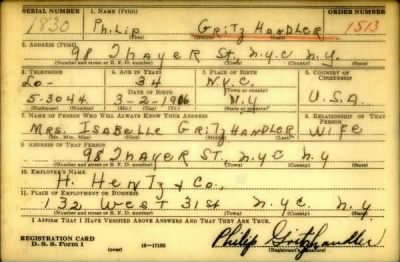 SERIAL NUMBER 1. NAME (Print) ORDER NUMBER
1830 Philip Gritz Handler 1513
2. ADDRESS (Print)
98 Thayer St. N.Y.C. N.Y.
3. TELEPHONE 4. AGE IN YEARS 5. PLACE OF BIRTH 6. COUNTRY OF CITIZENSHIP
Lo- 34 N.Y.C.
DATE OF BIRTH
5-3044 3-2-1906 N.Y U.S.A.
7. NAME OF PERSON WHO WILL ALWAYS KNOW YOUR ADDRESS 8. RELATIONSHIP OF THAT PERSON
Mrs. Isabelle Gritzhandler Wife
(Mr., Mrs., Miss) (First) (Middle) (Last)
9. ADDRESS OF THAT PERSON
98 Thayer St. N.Y.C N.Y
(Number and street or R. F. D. number) (Town) (County) (State)
10. EMPLOYER'S NAME
H. Hentz & Co.,
11. PLACE OF EMPLOYMENT OR BUSINESS
132 West 31st N.Y.C. N.Y.
(Number and street or R. F. D. number) (Town) (County) (State)
I AFFIRM THAT I HAVE VERIFIED ABOVE ANSWERS AND THAT THEY ARE TRUE.
REGISTRATION CARD
D. S. S. Form 1 (over) 16-17105 Philip Gritzhandler
(Registrant's signature)